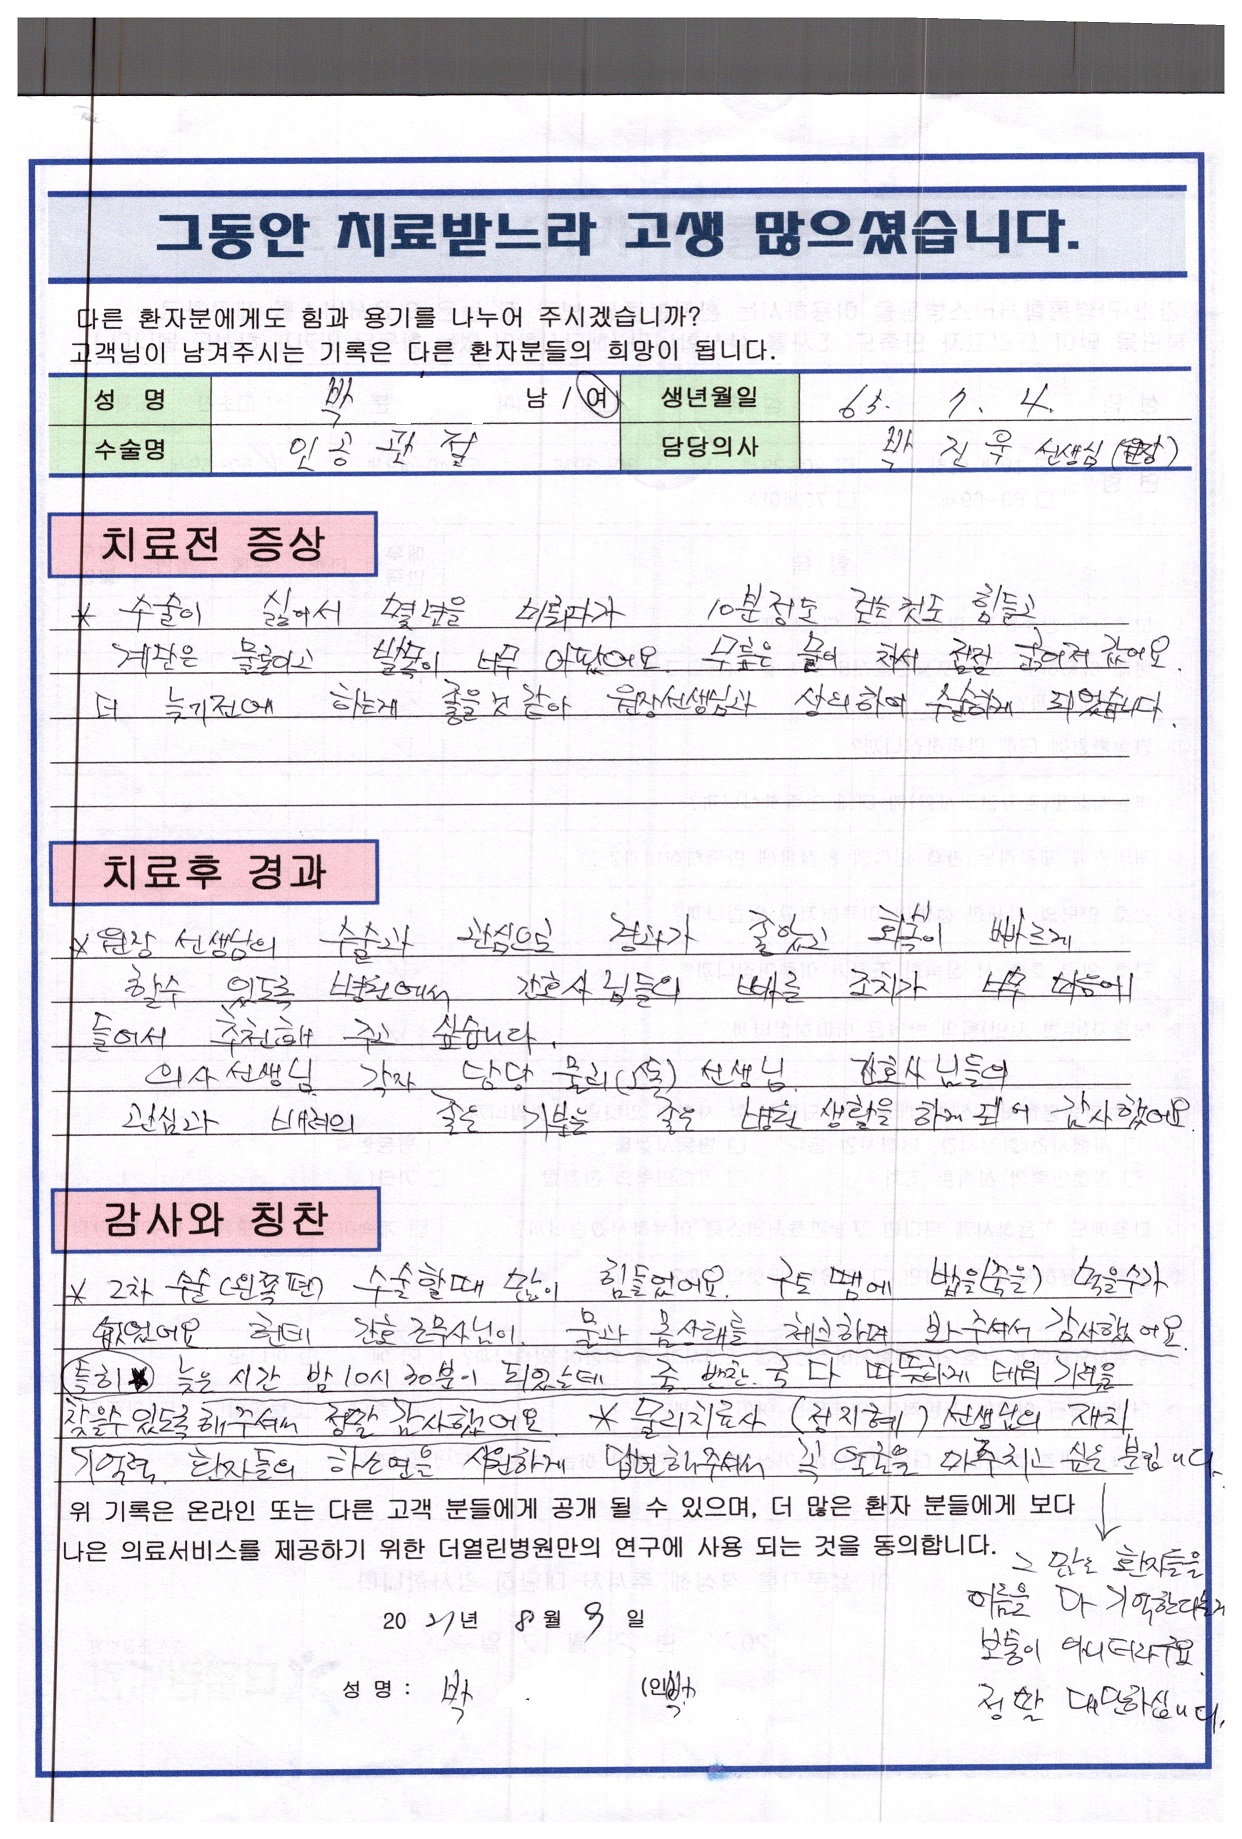 그동안 치료받느라 고생 많으셨습니다.
다른 환자분에게도 힘과 용기를 나누어 주시겠습니까?
고객님이 남겨주시는 기록은 다른 환자분들의 희망이 됩니다.
성 명 박 남 / 여 생년월일 65. 7. 4.
수술명 인공관절 담당의사 박진욱 선생님 (원장)
치료전 증상
* 수술이 싫어서 몇년을 미루다가 10분정도 걷는것도 힘들고
계단은 물론이고 발목이 너무 아팠어요. 무릎은 물이 차서 점점 굵어져 갔어요.
더 늦기전에 하는게 좋을것 같아 원장선생님과 상의하여 수술하게 되었습니다.
치료후 경과
* 원장 선생님의 수술과 관심으로 경과가 좋았고 회복이 빠르게
할수 있도록 병원에서 간호사님들의 빠른 조치가 너무 마음에
들어서 추천해 주고 싶습니다.
의사선생님. 각자 담당 물리(도수) 선생님. 간호사님들의
관심과 배려의 좋은 기분은 좋은 병원 생활을 하게 되어 감사했어요.
감사와 칭찬
* 2차 수술(왼쪽편) 수술할때 많이 힘들었어요. 구토 땜에 밥을(죽을) 먹을수가
없었어요 헌데 간호 근무사님이. 물과 몸상태를 체크하며 봐주셔서 감사했어요.
특히 늦은 시간 밤 10시 30분이 되었는데 죽. 반찬. 국 다 따뜻하게 데워 기력을
찾을수있도록 해주셔서 정말 감사했어요 * 물리치료사 (정지혜) 선생님의 재치
기억력. 환자들의 하소연을 시원하게 답변해주셔서 꼭 얼굴을 마주치고 싶은 분입니다.
위 기록은 온라인 또는 다른 고객 분들에게 공개 될 수 있으며, 더 많은 환자 분들에게 보다
나은 의료서비스를 제공하기 위한 더열린병원만의 연구에 사용 되는 것을 동의합니다.
그 많은 환자들을
이름을 다 기억한다는게
보통이 아니더라구요.
정말 대단하십니다.
2021년 8월 9일
성 명 : 박 (인) 박